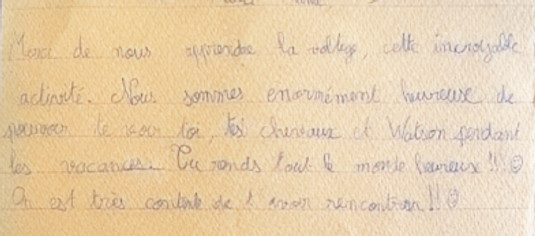 Merci de nous apprendre la voltige, cette incroyable
activité. Nous sommes enormément heureuse de
pouvoir te revoir toi, tes chevaux et Watson pendant
les vacances. Tu rends tout le monde heureux !! ☺
On est très contente de t'avoir rencontrer !! ☺